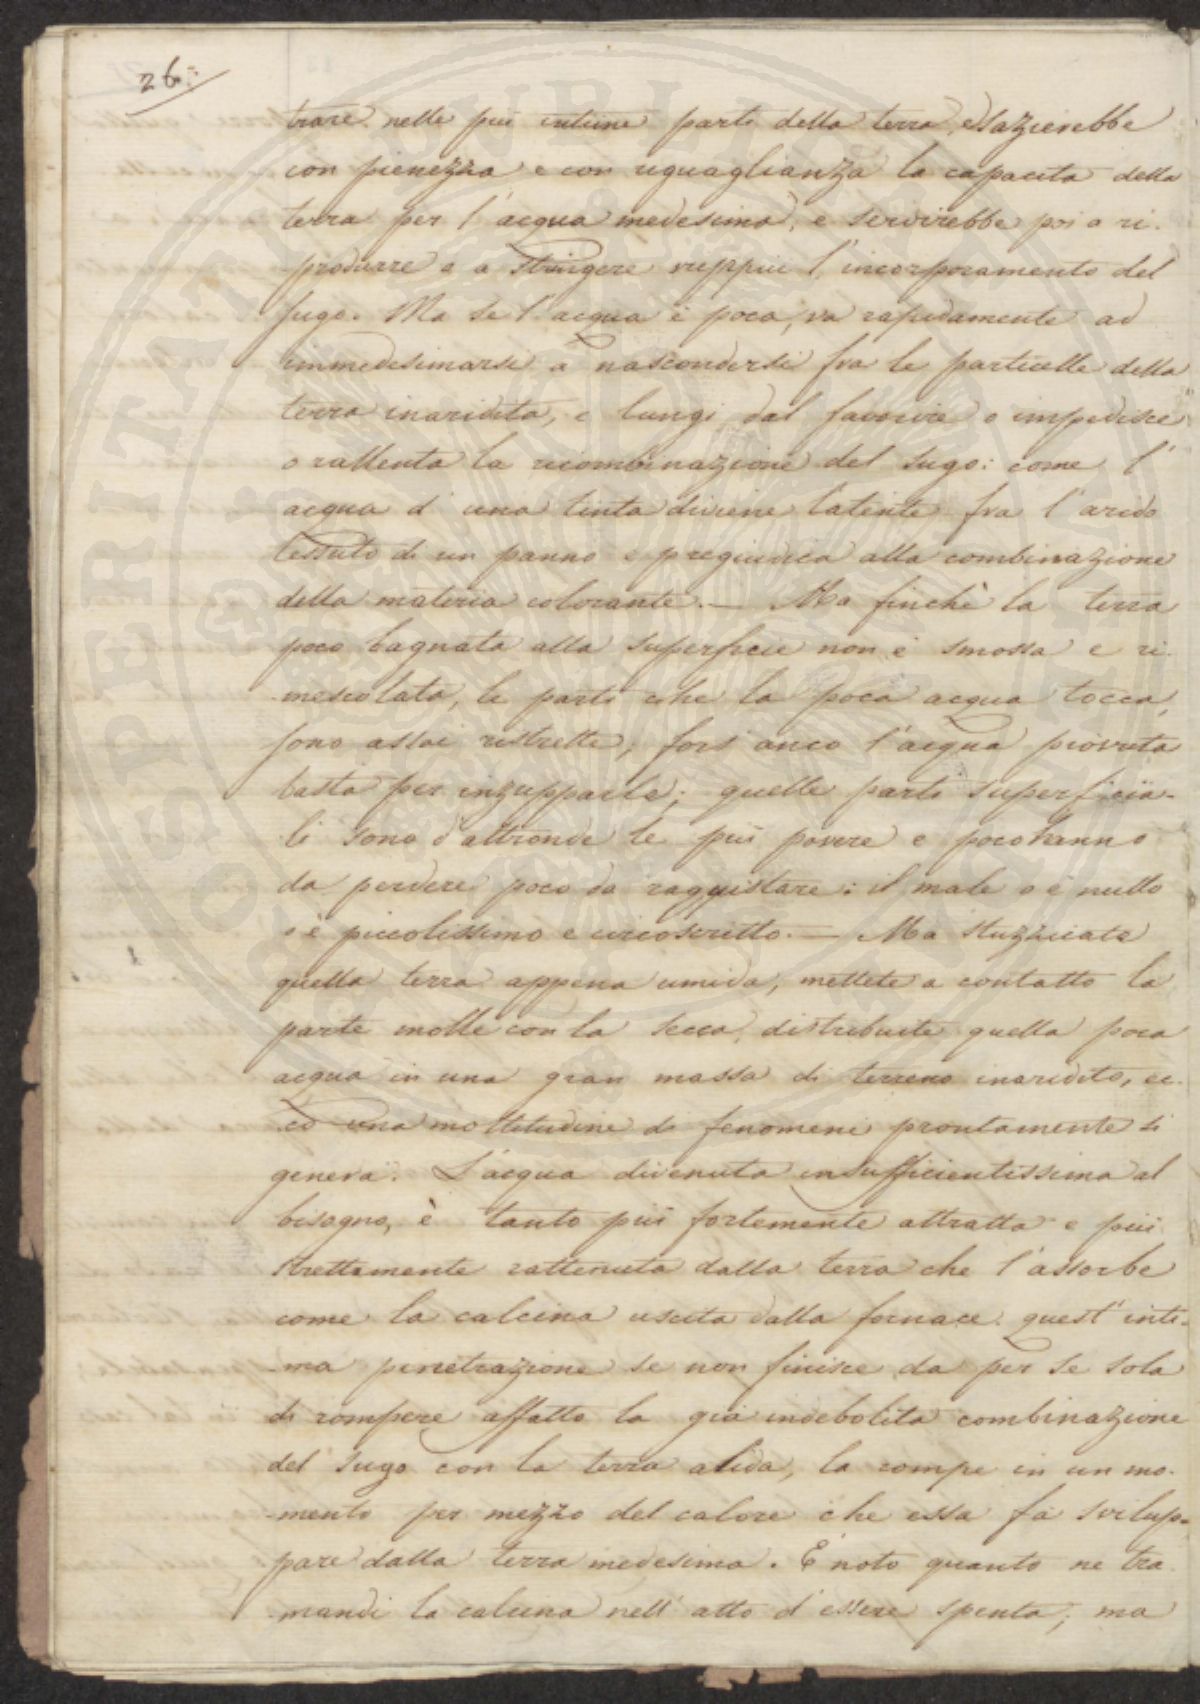 26.
trare nelle più intime parti della terra, essazierebbe
con pienezza e con uguaglianza la capacita della
terra per l'acqua medesima, e servirebbe poi a ri-
produrre o a stringere vieppiù l'incorporamento del
sugo. Ma se l'acqua è poca, va rapidamente ad
immedesimarsi a nascondersi fra le particelle della
terra inaridita, e lungi dal favorire o impedisce
o rallenta la ricombinazione del sugo: come l'
acqua d'una tinta diviene latente fra l'arido
tessuto di un panno e pregiudica alla combinazione
della materia colorante. — Ma finchè la terra
poco bagnata alla superficie non è smossa e ri-
mescolata, le parti che la poca acqua tocca,
sono assai ristrette; fors'anco l'acqua piovuta
basta per inzupparle; quelle parti superficia-
li sono d'altronde le più povere e poco hanno
da perdere poco da raqquistare: il male o è nullo
o è piccolissimo e circoscritto. — Ma stuzzicate
quella terra appena umida, mettete a contatto la
parte molle con la secca, distribuite quella poca
acqua in una gran massa di terreno inaridito, ec-
co una moltitudine di fenomeni prontamente si
genera. L'acqua divenuta insufficientissima al
bisogno, è tanto più fortemente attratta e più
strettamente rattenuta dalla terra che l'assorbe
come la calcina uscita dalla fornace. quest'inti-
ma penetrazione se non finisce da per se sola
di rompere affatto la già indebolita combinazione
del sugo con la terra alida, la rompe in un mo-
mento per mezzo del calore che essa fa svilup-
pare dalla terra medesima. È noto quanto ne tra-
mandi la calcina nell'atto d'essere spenta; ma
PROSPERITATI PUBLICAE AUGENDAE